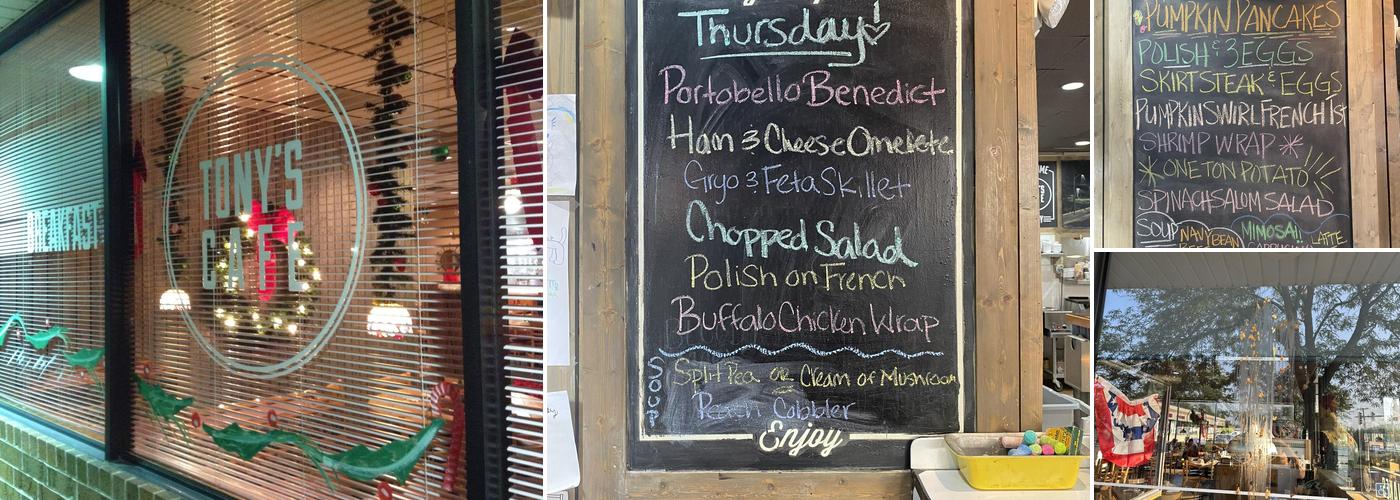 BREAKFAST
TONY'S
CAFE
Thursday!
Portobello Benedict
Ham & Cheese Omelete
Gryo & Feta Skillet
Chopped Salad
Polish on French
Buffalo Chicken Wrap
SOUP
Split Pea or Cream of Mushroom
Peach Cobbler
Enjoy
PUMPKIN PANCAKES
POLISH & 3 EGGS
SKIRT STEAK & EGGS
PUMPKIN SWIRL FRENCH TST
SHRIMP WRAP
ONE TON POTATO
SPINACH SALOM SALAD
SOUP NAVY BEAN MIMOSA LATTE